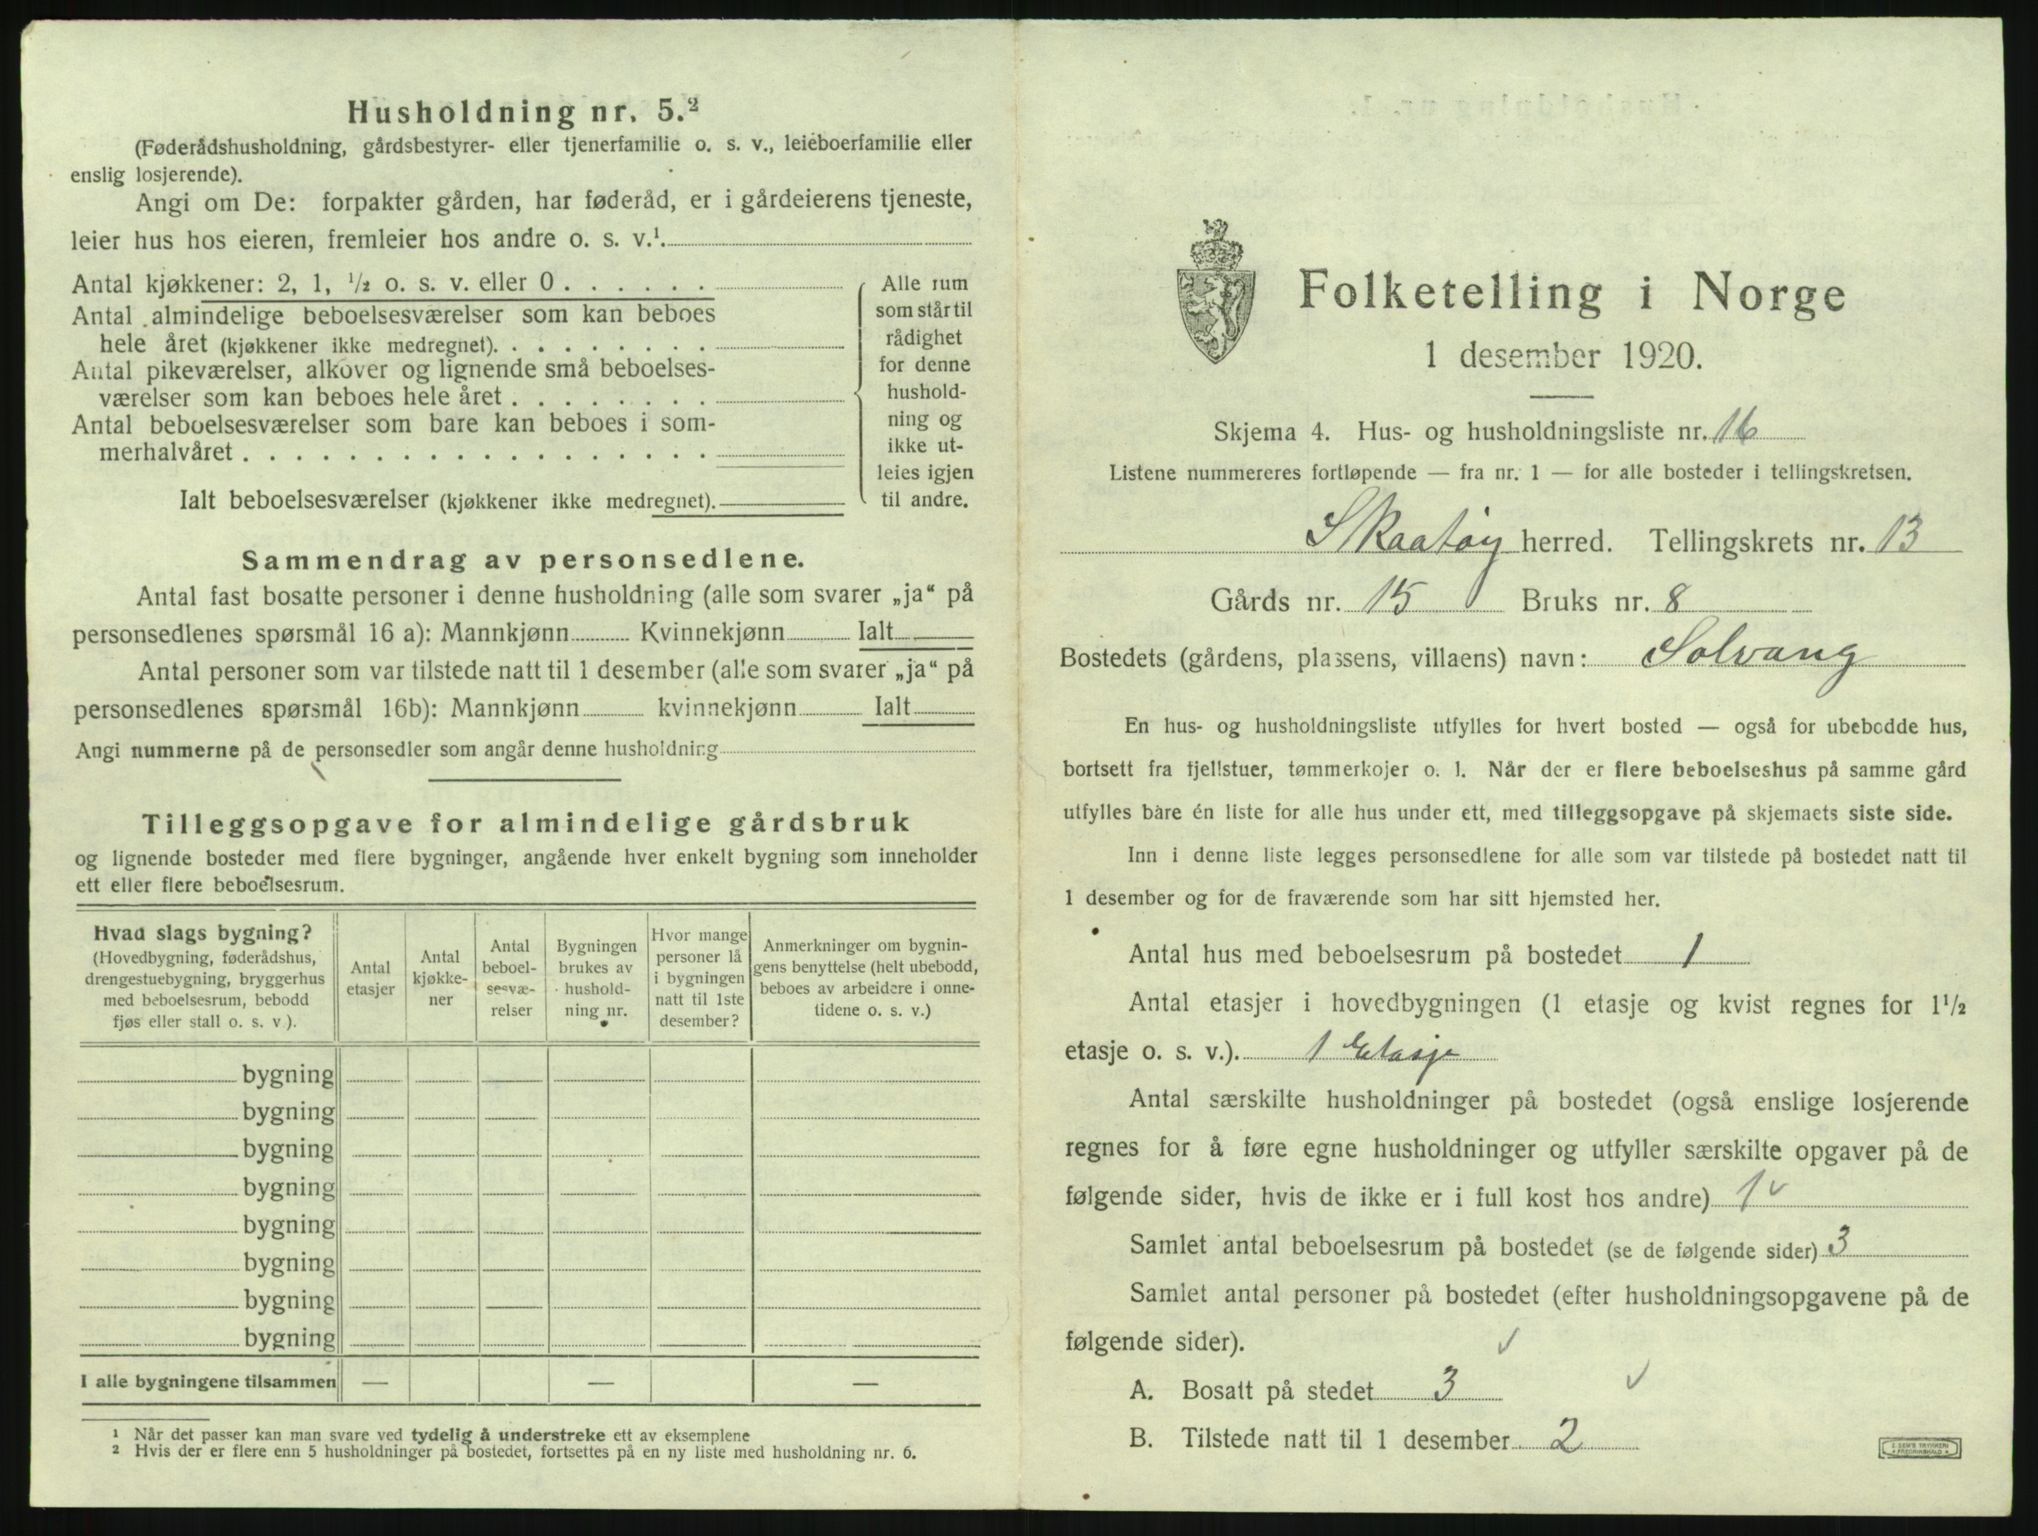 Husholdning nr. 5.²
(Føderådshusholdning, gårdsbestyrer- eller tjenerfamilie o. s. v., leieboerfamilie eller
enslig losjerende).
Angi om De: forpakter gården, har føderåd, er i gårdeierens tjeneste,
leier hus hos eieren, fremleier hos andre o. s. v.¹
Antal kjøkkener: 2, 1, ½ o. s. v. eller 0 . . . . . .
Antal almindelige beboelsesværelser som kan beboes
hele året (kjøkkener ikke medregnet). . . . . . . . .
Antal pikeværelser, alkover og lignende små beboelses-
værelser som kan beboes hele året . . . . . . . .
Antal beboelsesværelser som bare kan beboes i som-
merhalvåret . . . . . . . . . . . . . . . . . .
Ialt beboelsesværelser (kjøkkener ikke medregnet).
Alle rum
som står til
rådighet
for denne
hushold-
ning og
ikke ut-
leies igjen
til andre.
Sammendrag av personsedlene.
Antal fast bosatte personer i denne husholdning (alle som svarer „ja“ på
personsedlenes spørsmål 16 a): Mannkjønn Kvinnekjønn Ialt
Antal personer som var tilstede natt til 1 desember (alle som svarer „ja“ på
personsedlenes spørsmål 16b): Mannkjønn kvinnekjønn Ialt
Angi nummerne på de personsedler som angår denne husholdning
Tilleggsopgave for almindelige gårdsbruk
og lignende bosteder med flere bygninger, angående hver enkelt bygning som inneholder
ett eller flere beboelsesrum.
Hvad slags bygning?
(Hovedbygning, føderådshus,
drengestuebygning, bryggerhus
med beboelsesrum, bebodd
fjøs eller stall o. s. v ).
Antal
etasjer
Antal
kjøkke-
ner
Antal
beboel-
sesvæ-
relser
Bygningen
brukes av
hushold-
ning nr.
Hvor mange
personer lå
i bygningen
natt til 1ste
desember?
Anmerkninger om bygnin-
gens benyttelse (helt ubebodd,
beboes av arbeidere i onne-
tidene o. s. v.)
bygning
bygning
bygning
bygning
bygning
bygning
bygning
bygning
I alle bygningene tilsammen — — —
¹ Når det passer kan man svare ved tydelig å understreke ett av eksemplene
² Hvis der er flere enn 5 husholdninger på bostedet, fortsettes på en ny liste med husholdning nr. 6.
Folketelling i Norge
1 desember 1920.
Skjema 4. Hus- og husholdningsliste nr. 16
Listene nummereres fortløpende — fra nr. 1 — for alle bosteder i tellingskretsen.
Skaatøy herred. Tellingskrets nr. 13
Gårds nr. 15 Bruks nr. 8
Bostedets (gårdens, plassens, villaens) navn: Solvang
En hus- og husholdningsliste utfylles for hvert bosted — også for ubebodde hus,
bortsett fra fjellstuer, tømmerkojer o. l. Når der er flere beboelseshus på samme gård
utfylles bare én liste for alle hus under ett, med tilleggsopgave på skjemaets siste side.
Inn i denne liste legges personsedlene for alle som var tilstede på bostedet natt til
1 desember og for de fraværende som har sitt hjemsted her.
Antal hus med beboelsesrum på bostedet 1
Antal etasjer i hovedbygningen (1 etasje og kvist regnes for 1½
etasje o. s. v.). 1 Etasje
Antal særskilte husholdninger på bostedet (også enslige losjerende
regnes for å føre egne husholdninger og utfyller særskilte opgaver på de
følgende sider, hvis de ikke er i full kost hos andre) 1 ✓
Samlet antal beboelsesrum på bostedet (se de følgende sider) 3
Samlet antal personer på bostedet (efter husholdningsopgavene på de
følgende sider). ✓
A. Bosatt på stedet 3 ✓
B. Tilstede natt til 1 desember 2